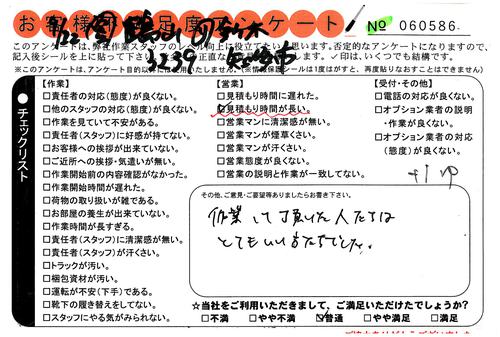 お客様満足度アンケート
№ 060586
このアンケートは、弊社作業スタッフのレベル向上に役立てたいと思います。否定的なアンケートになりますので、
記入後シールを上に貼って下さい。
正直な
✓印は、いくつでも結構です。
※このアンケートは、アンケート目的以外には使用いたしません。(※情報保護シールは1度はがすと、再度貼りなおすことはできません)
チェックリスト
【作業】
□責任者の対応(態度)が良くない。
□他のスタッフの対応(態度)が良くない。
□作業を見ていて不安がある。
□責任者(スタッフ)に好感が持てない。
□お客様への挨拶が出来ていない。
□ご近所への挨拶・気遣いが無い。
□作業開始前の内容確認がなかった。
□作業開始時間が遅れた。
□荷物の取り扱いが雑である。
□お部屋の養生が出来ていない。
□作業時間が長すぎる。
□責任者(スタッフ)に清潔感が無い。
□責任者(スタッフ)が汗くさい。
□トラックが汚い。
□梱包資材が汚い。
□運転が不安(下手)である。
□靴下の履き替えをしてない。
□スタッフにやる気がみられない。
【営業】
□見積もり時間に遅れた。
☑見積もり時間が長い。
□営業マンに清潔感が無い。
□営業マンが煙草くさい。
□営業マンが汗くさい。
□営業態度が良くない。
□営業の説明と作業が一致してない。
【受付・その他】
□電話の対応が良くない。
□オプション業者の説明
・作業が良くない。
□オプション業者の対応
(態度)が良くない。
その他、ご意見・ご要望等ありましたらお書き下さい。
作業して頂いた人たちは
とてもいい方たちでした。
☆当社をご利用いただきまして、ご満足いただけたでしょうか?
□不満 □やや不満 ☑普通 □やや満足 □満足